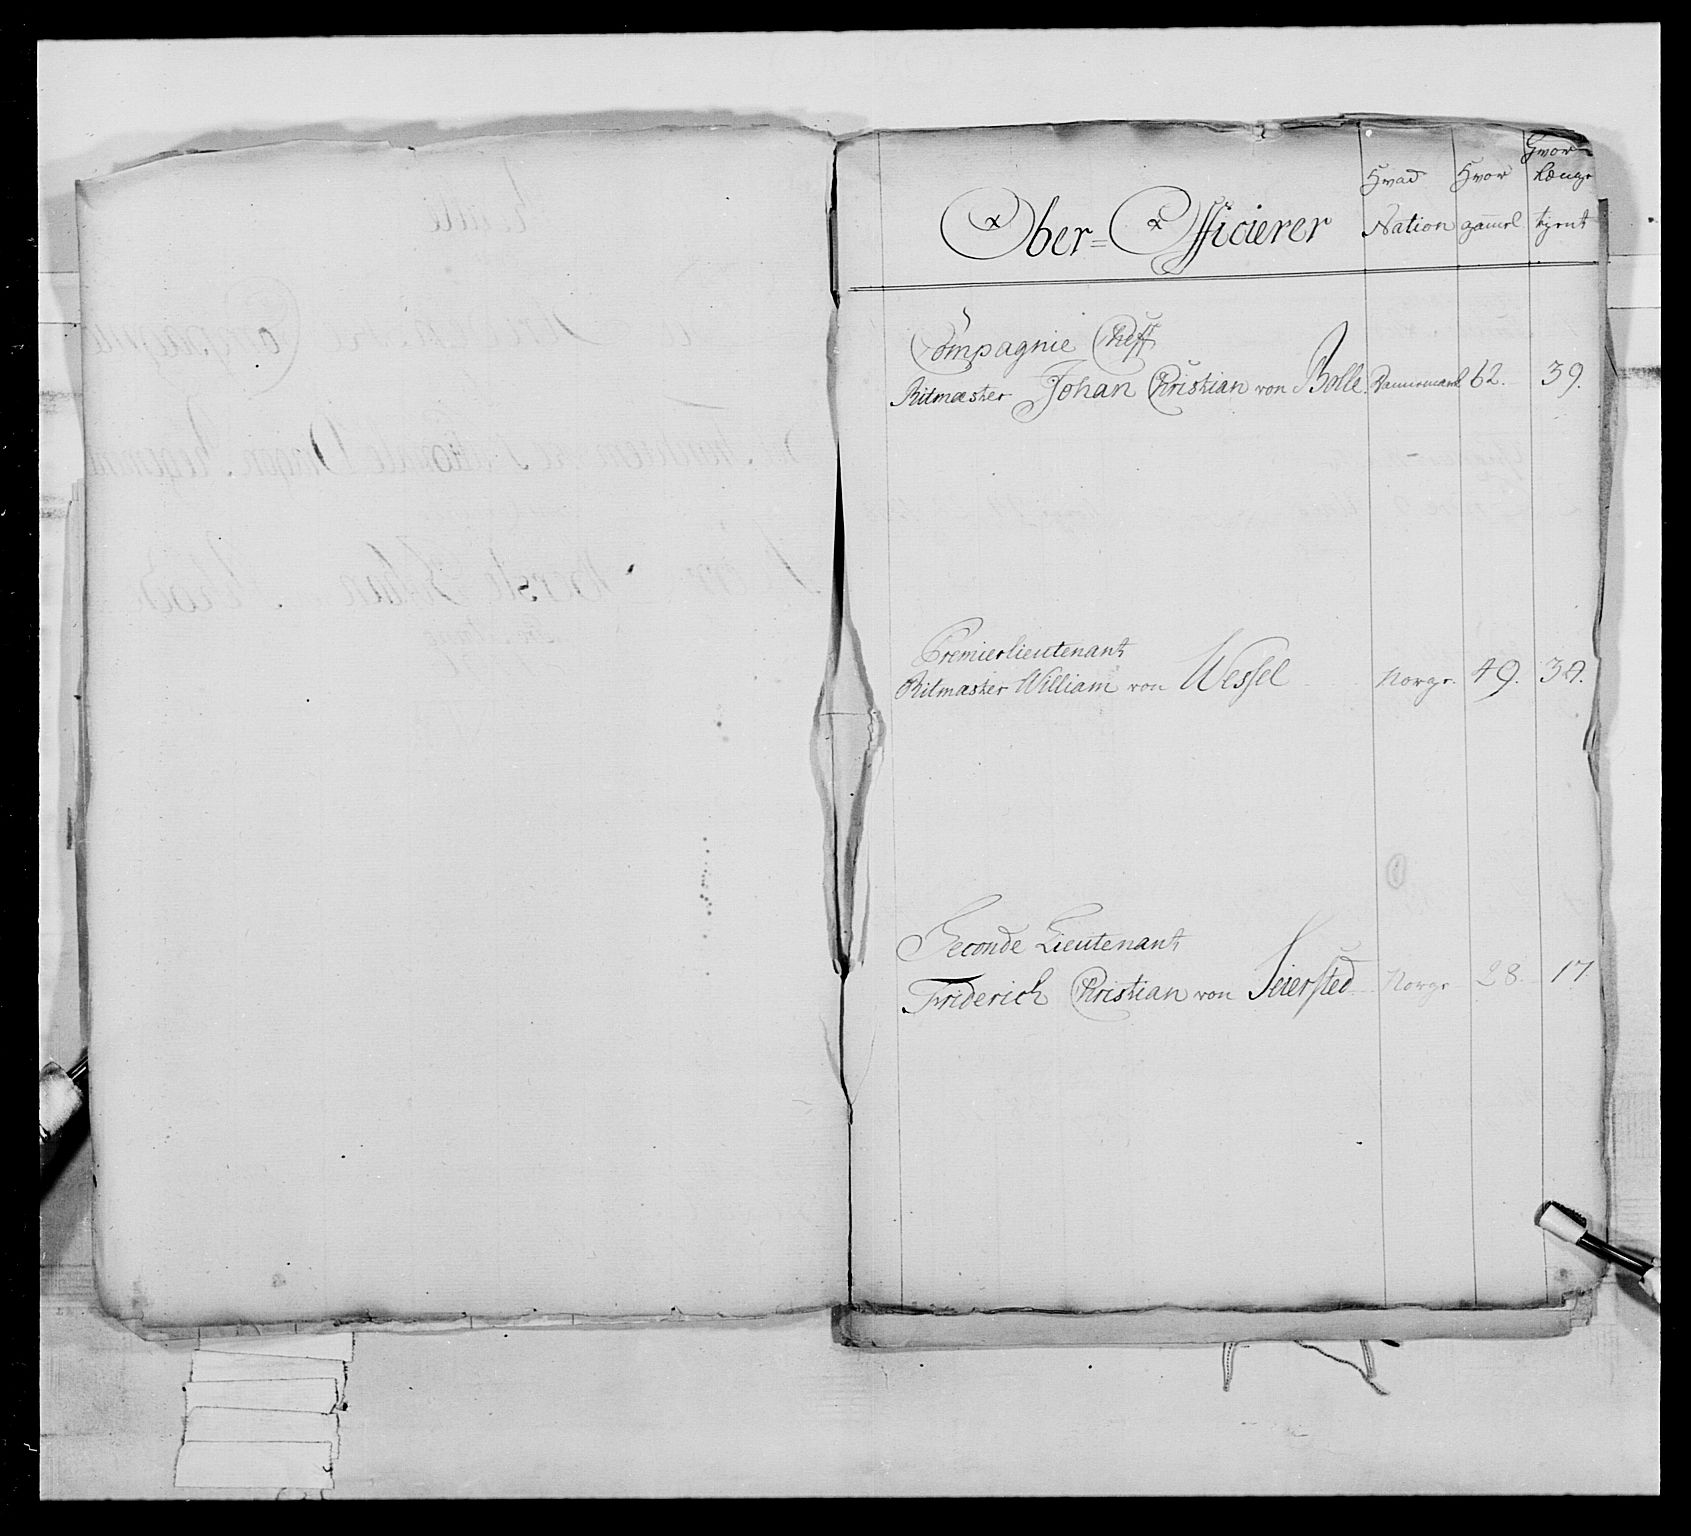 Ober=Officierer
Hvad Nation
Hvor gammel
Hvor Længe tjent
Compagnie Cheff
Ritmester Johan Christian von Bolle. Dannemark 62. 39.
Premierlieutenant
Ritmester William von Wessel Norge. 49. 34.
Seconde Lieutenant
Friderich Christian von Seiersted Norge 28. 17